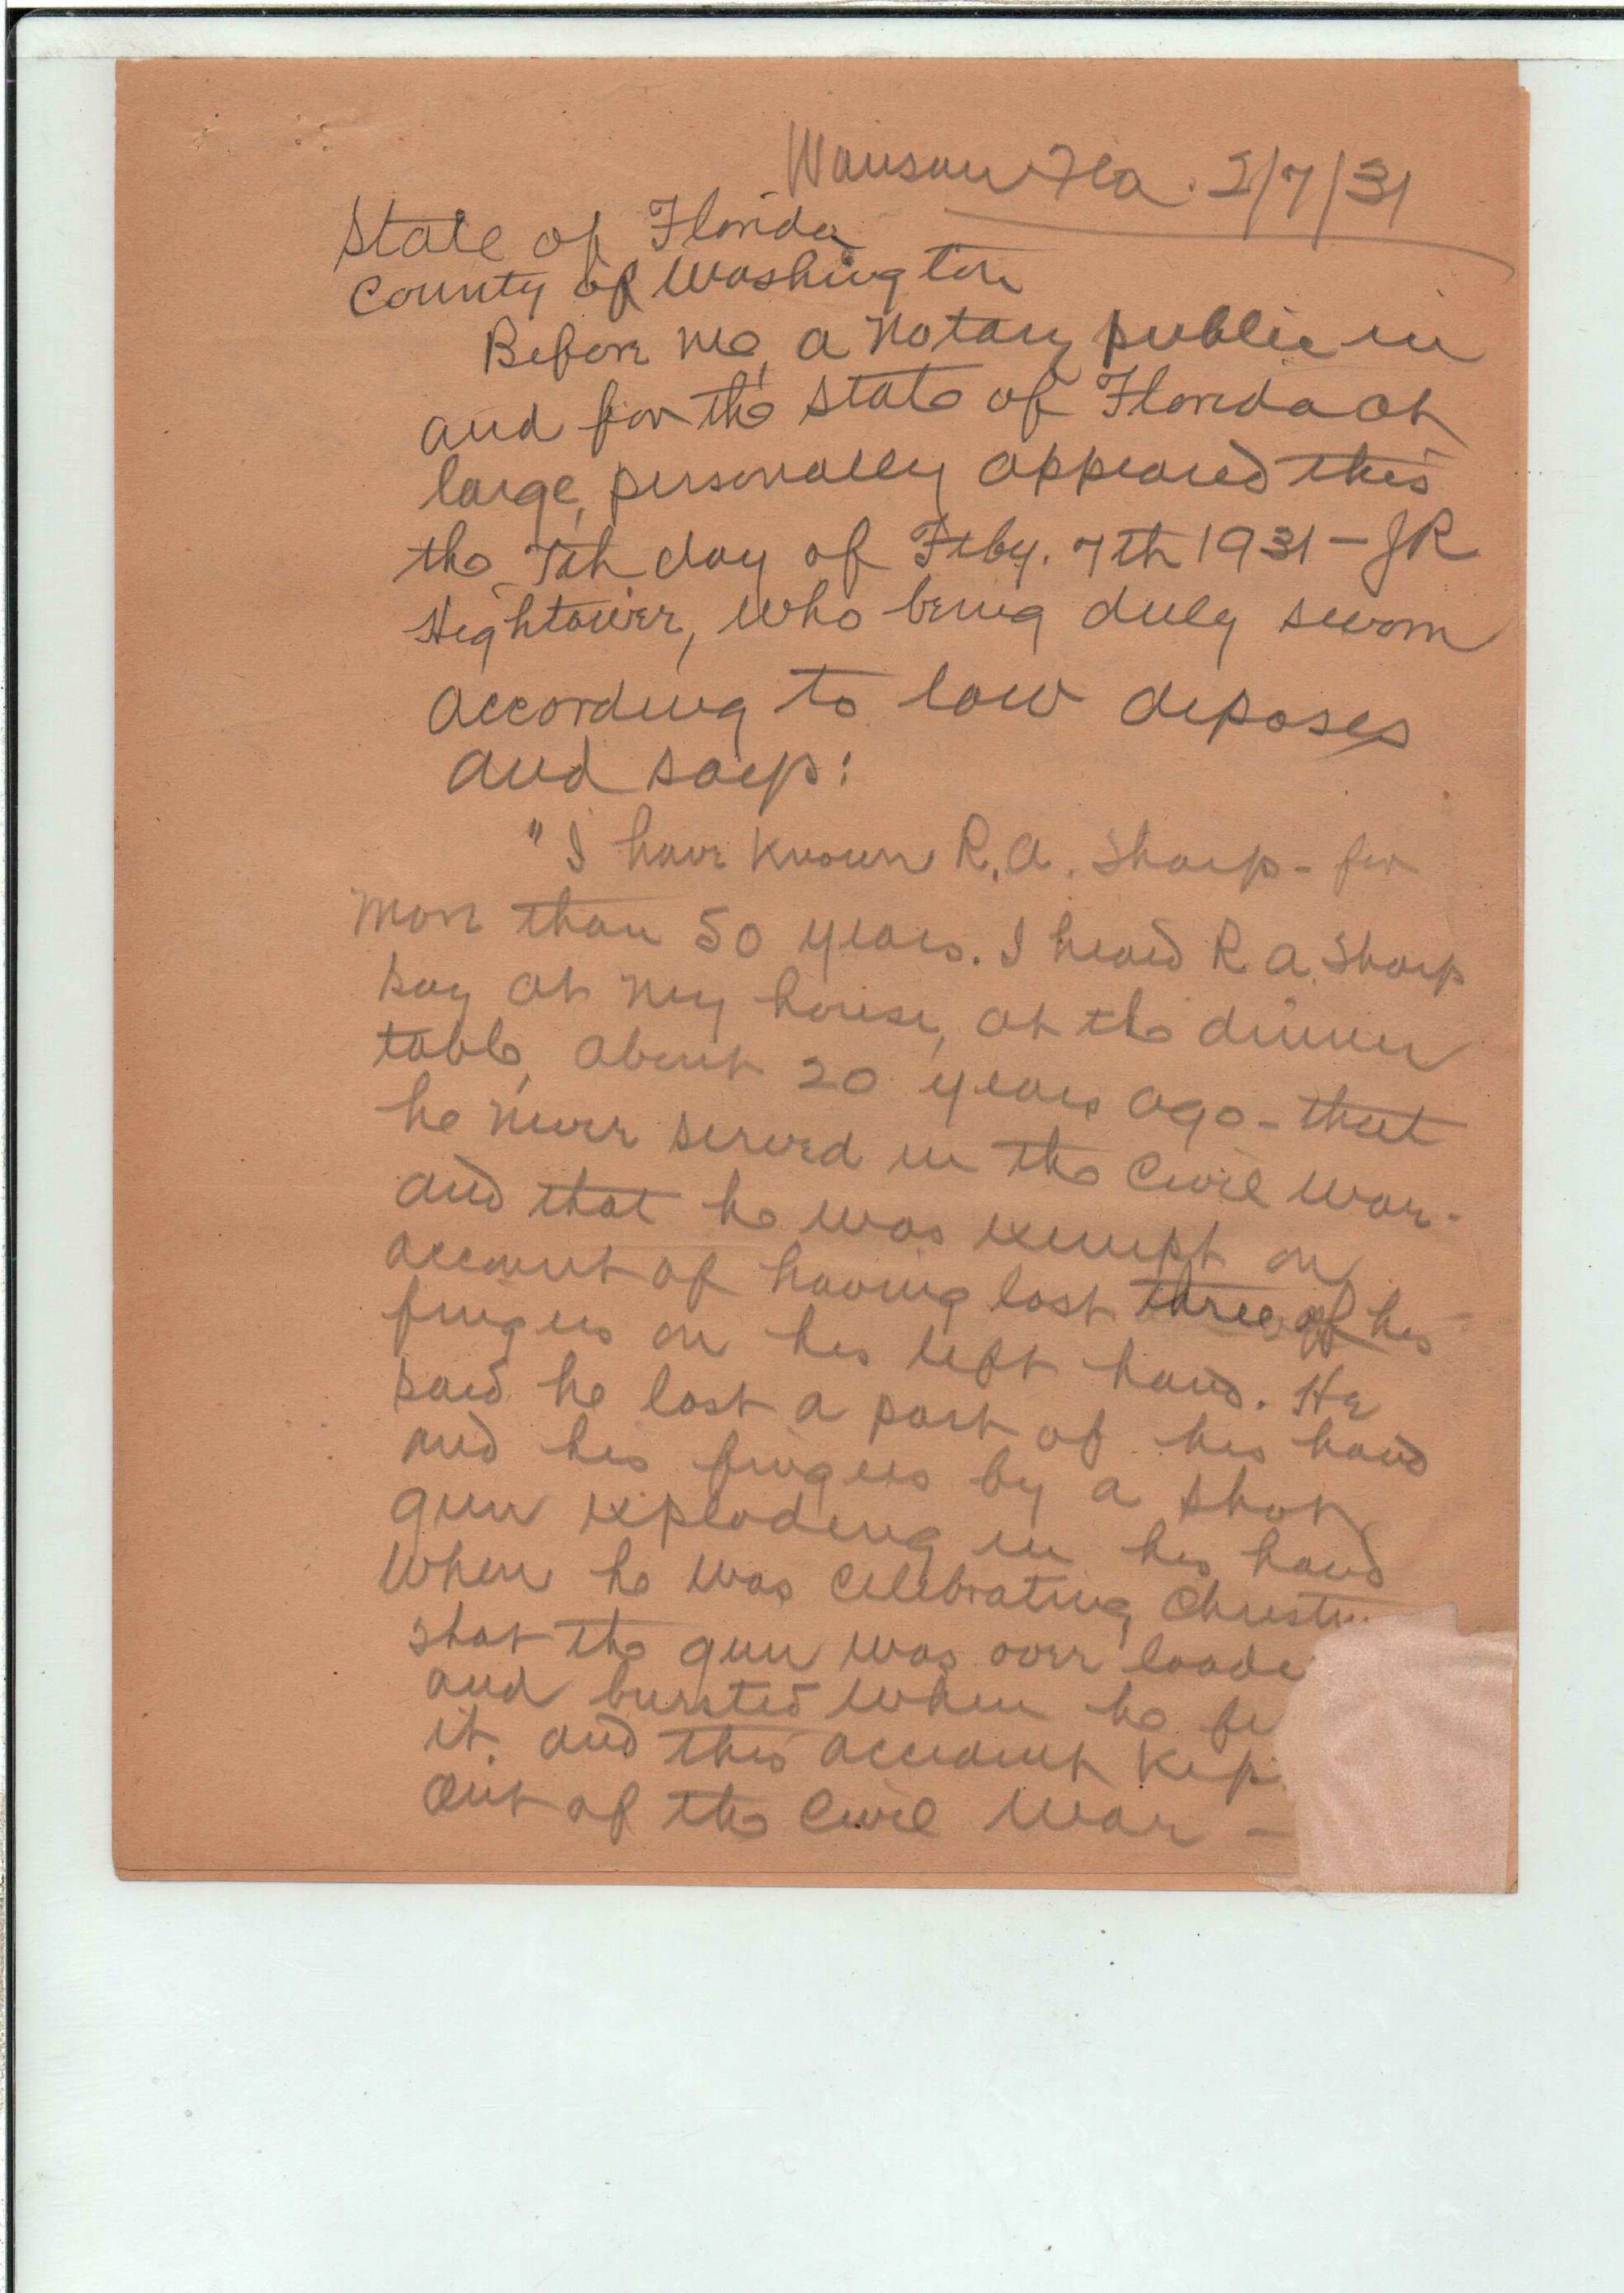 Wausau Fla. 2/7/31
State of Florida
County of Washington
Before me, a Notary public in
and for the State of Florida at
large, personally appeared this
the 7th day of Feby. 7th 1931 - JR
Hightower, who being duly sworn
according to law deposes
and says:
"I have known R.A. Sharp - for
more than 50 years. I heard R.A. Sharp
say at my house, at the dinner
table, about 20 years ago - that
he never served in the Civil War -
and that he was exempt on
account of having lost three of his
fingers on his left hand. He
said he lost a part of his hand
and his fingers by a shot
gun exploding in his hand
when he was celebrating Christm
that the gun was over loade
and bursted when he fi
it. and this accident kep
out of the Civil War -